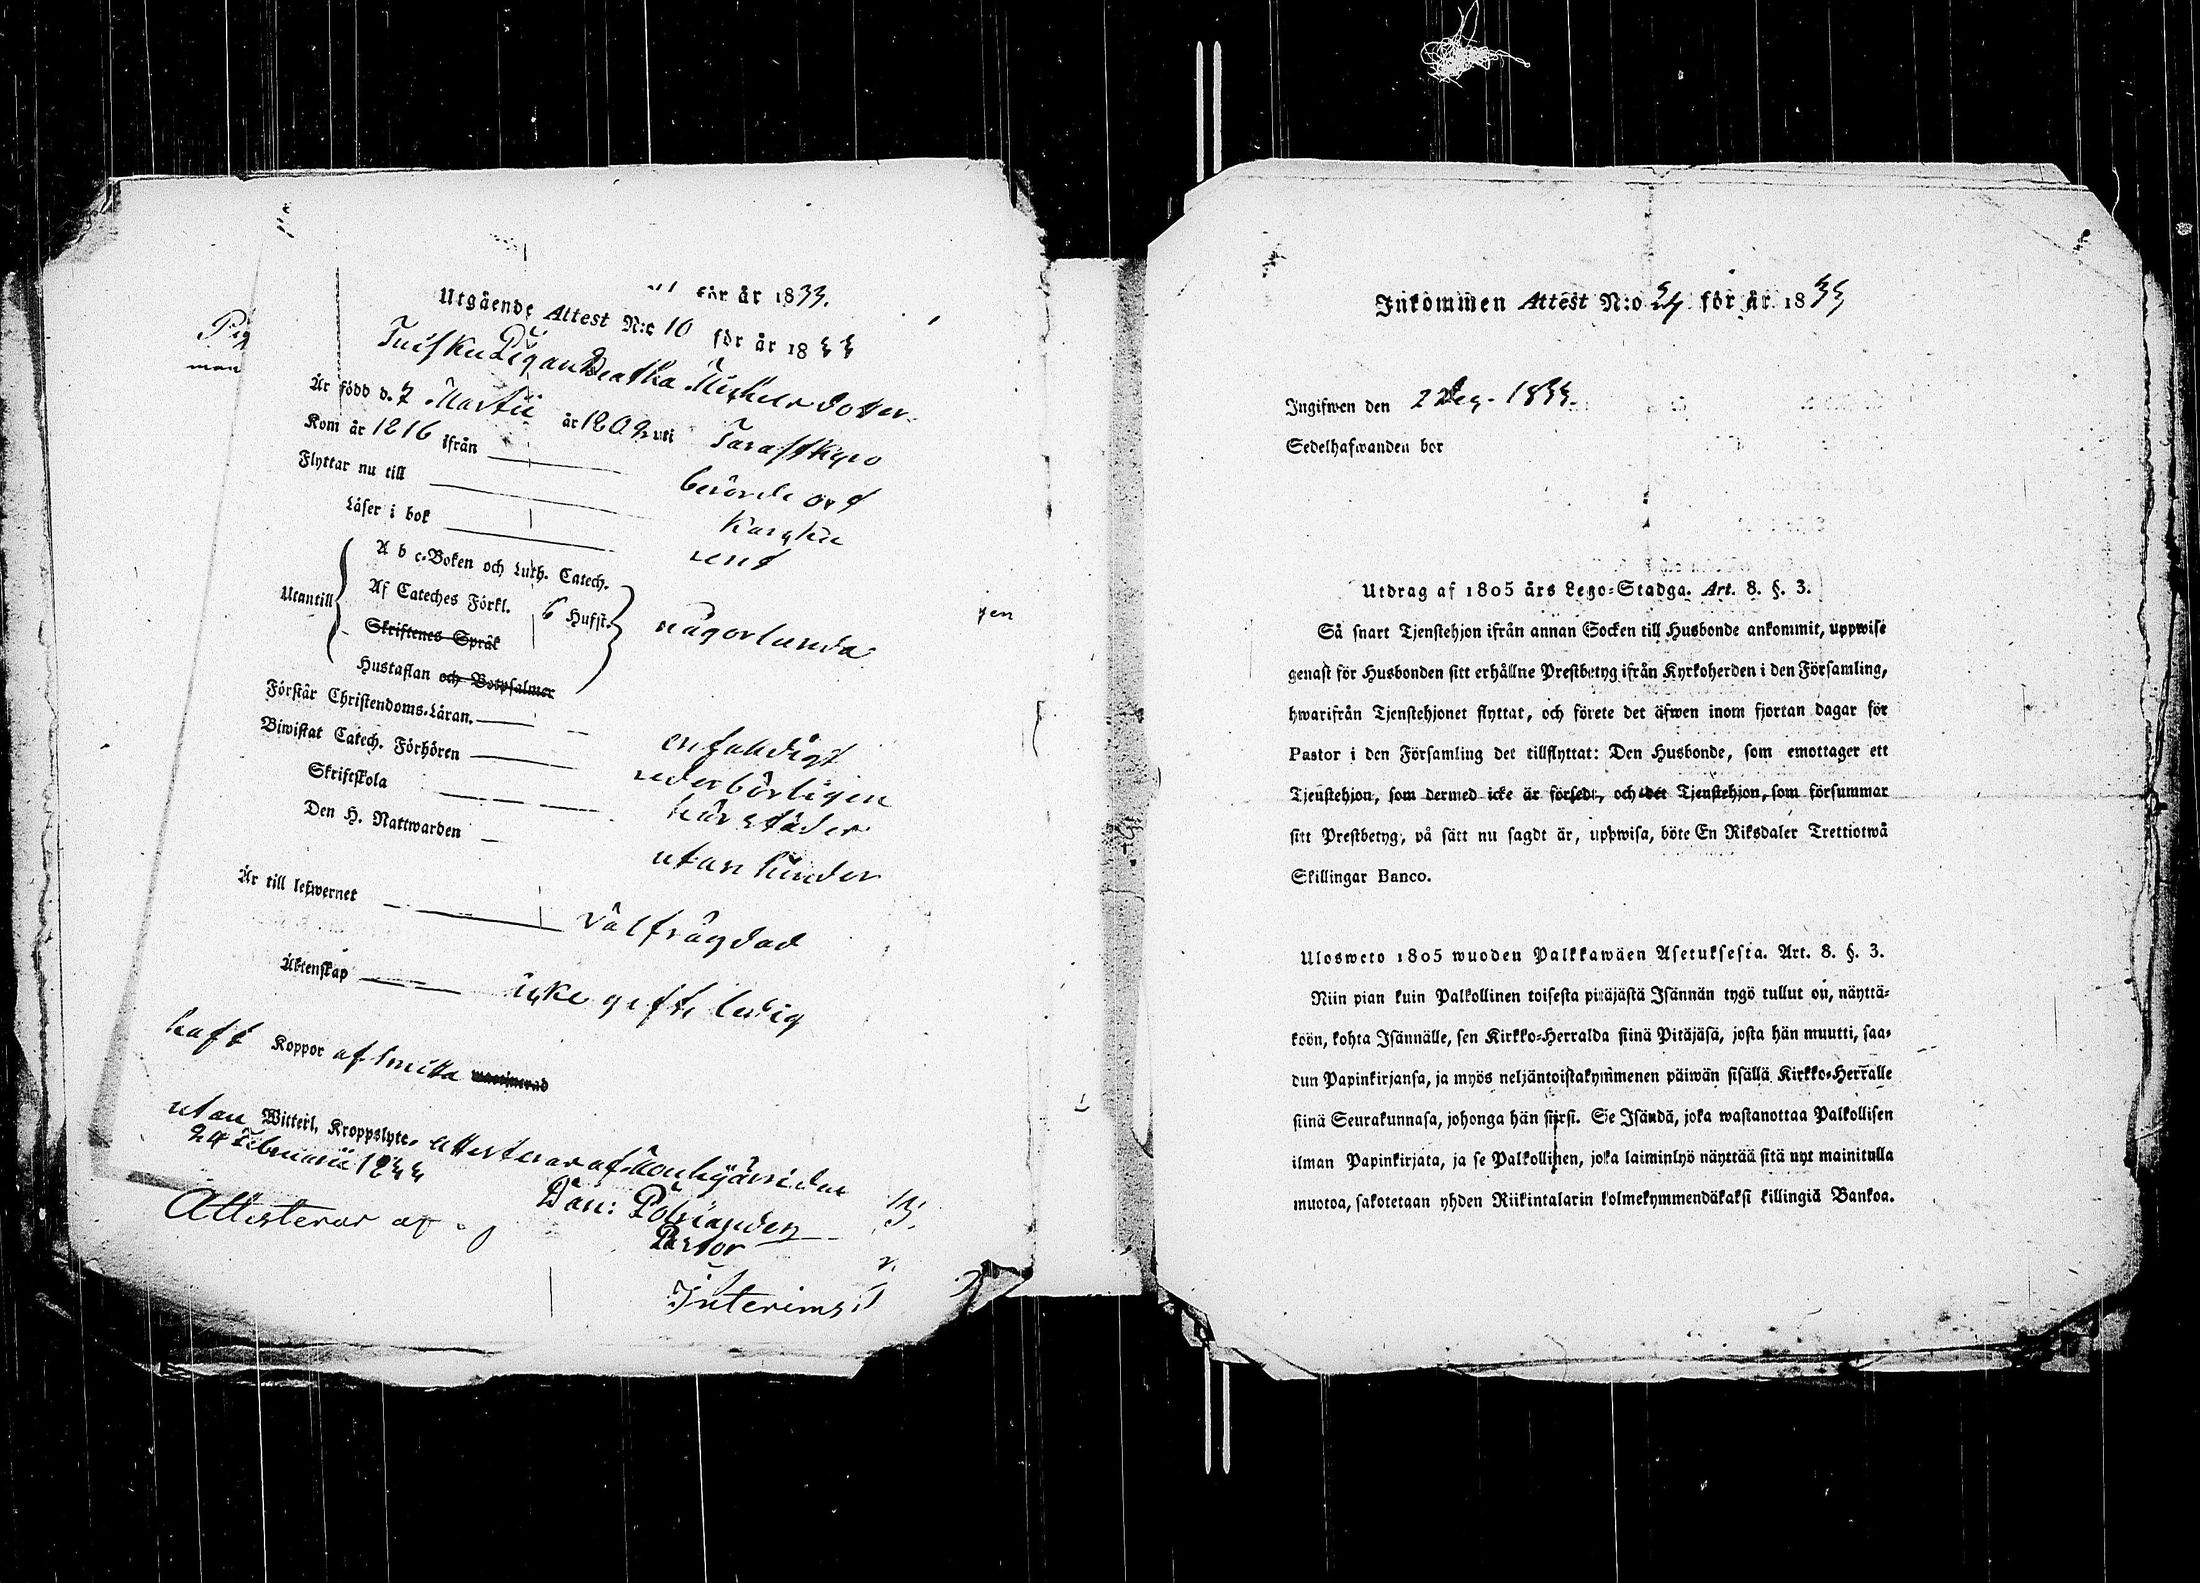 för år 1833.
Utgående Attest N:o 10 för år 1833
Pig
man
Pigan Beatha Michelsdotter
Är född d. 7 Martii år 1802 uti Tavastkyro
Kom år 1816 ifrån berörde ort
Flyttar nu till Karkku
Läser i bok rent
Utantill
A b c-Boken och Luth. Catech.
Af Cateches Förkl. 6 Hufst.
Skriftenes Språk
Hustaflan och Botpsalmer
någorlunda
jen
Förstår Christendoms-Läran. enfaldigt
Biwistat Catech. Förhören vederbörligen
Skriftskola härstädes
Den H. Nattwarden utan hinder
Är till lefwernet välfrägdad
Äktenskap icke gift, ledig
haft Koppor af smitta waccinerad
utan Witterl. Kroppslyte, attesterar af
24 Februarii 1833
Dan: Polviander
Pastor
Attesterar af
Interims
Inkommen Attest N:o 24 för år 1833
Ingifwen den 2 Dec. 1833.
Sedelhafwanden bor
Utdrag af 1805 års Lego-Stadga. Art. 8. §. 3.
Så snart Tjenstehjon ifrån annan Socken till Husbonde ankommit, uppwise
genast för Husbonden sitt erhållne Prestbetyg ifrån Kyrkoherden i den Församling,
hwarifrån Tjenstehjonet flyttat, och förete det äfwen inom fjortan dagar för
Pastor i den Församling det tillflyttat: Den Husbonde, som emottager ett
Tjenstehjon, som dermed icke är försedt, och det Tjenstehjon, som försummar
sitt Prestbetyg, på sätt nu sagdt är, uppwisa, böte En Riksdaler Trettiotwå
Skillingar Banco.
Ulosweto 1805 wuoden Palkkawäen Asetuksesta. Art. 8. §. 3.
Niin pian kuin Palkollinen toisesta pitäjästä Isännän tygö tullut on, näyttä-
köön, kohta Isännälle, sen Kirkko-Herralda siinä Pitäjäsä, josta hän muutti, saa-
dun Papinkirjansa, ja myös neljäntoistakymmenen päiwän sisällä Kirkko-Herralle
siinä Seurakunnasa, johonga hän siirsi. Se Isändä, joka wastanottaa Palkollisen
ilman Papinkirjata, ja se Palkollinen, joka laiminlyö näyttää sitä nyt mainitulla
muotoa, sakotetaan yhden Riikintalarin kolmekymmendäkaksi killingiä Bankoa.